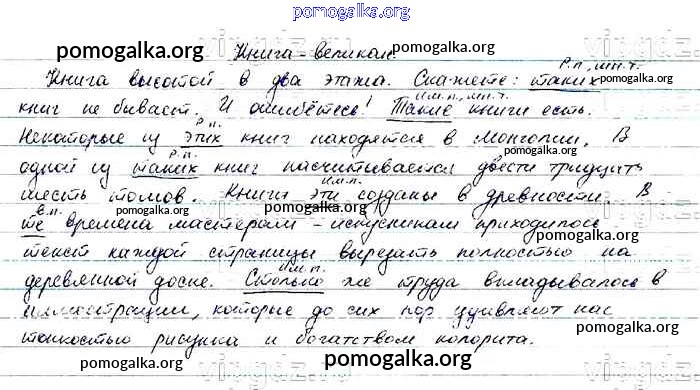 pomogalka.org
pomogalka.org pomogalka.org
Книга-великан.
Р.п., мн.ч.
Книга высотой в два этажа. Скажете: таких
pomogalka.org
Им.п., мн.ч.
книг не бывает. И ошибётесь! Такие книги есть.
pomogalka.org pomogalka.org
Р.п.
Некоторые из этих книг находятся в Монголии. В
Р.п.
одной из таких книг насчитывается двести тридцать
pomogalka.org pomogalka.org
Им.п.
шесть томов. Книги эти созданы в древности. В
pomogalka.org pomogalka.org pomogalka.org
В.п.
те времена мастерам-искусникам приходилось
текст каждой страницы вырезать полностью на
pomogalka.org pomogalka.org
Им.п.
деревянной доске. Столько же труда вкладывалось в
иллюстрации, которые до сих пор удивляют нас
pomogalka.org pomogalka.org
тонкостью рисунка и богатством колорита.
pomogalka.org pomogalka.org
pomogalka.org